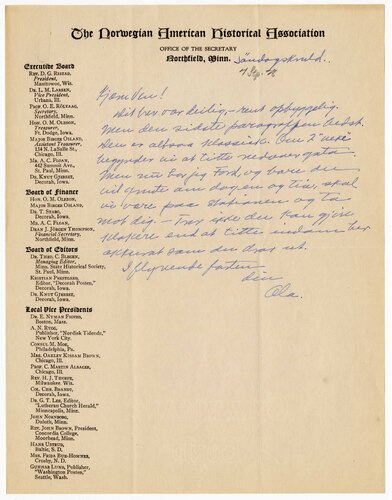 The Norwegian American Historical Association
OFFICE OF THE SECRETARY
Northfield, Minn. Søndagskveld.
Executive Board
REV. D. G. RISTAD,
President,
Manitowoc, Wis.
DR. L. M. LARSEN,
Vice President,
Urbana, Ill.
PROF. O. E. RÖLVAAG,
Secretary,
Northfield, Minn.
HON. O. M. OLESON,
Treasurer,
Ft. Dodge, Iowa.
MAJOR BIRGER OSLAND,
Assistant Treasurer,
134 N. LaSalle St.,
Chicago, Ill.
MR. A. C. FLOAN,
442 Summit Ave.,
St. Paul, Minn.
DR. KNUT GJERSET,
Decorah, Iowa.
Board of Finance
HON. O. M. OLESON,
MAJOR BIRGER OSLAND,
DR. T. STABO,
Decorah, Iowa.
MR. A. C. FLOAN,
DEAN J. JÖRGEN THOMPSON,
Financial Secretary,
Northfield, Minn.
Board of Editors
DR. THEO. C. BLEGEN,
Managing Editor,
Minn. State Historical Society,
St. Paul, Minn.
KRISTIAN PRESTGARD,
Editor, "Decorah Posten,"
Decorah, Iowa.
DR. KNUT GJERSET,
Decorah, Iowa.
Local Vice Presidents
DR. E. NYMAN FIGVED,
Boston, Mass.
A. N. RYGG,
Publisher, "Nordisk Tidende,"
New York City.
CONSUL M. MOE,
Philadelphia, Pa.
MRS. OAKLEY KISSAM BROWN,
Chicago, Ill.
PROF. C. MARTIN ALSAGER,
Chicago, Ill.
REV. H. J. THORPE,
Milwaukee, Wis.
COL. CHR. BRANDT,
Decorah, Iowa.
DR. G. T. LEE, Editor,
"Lutheran Church Herald,"
Minneapolis, Minn.
JOHN NORDBOE,
Duluth, Minn.
REV. JOHN BROWN, President,
Concordia College,
Moorhead, Minn.
HANS USTRUD,
Baltic, S. D.
MRS. FRIDA BUE-HOMNES,
Crosby, N. D.
GUNNAR LUND, Publisher,
"Washington Posten,"
Seattle, Wash.
Kjem Venn!
Dit brev var deilig, rent opbyggelig.
Men den sidste paragrafen bedst.
Den er klassisk. Om 3 uker
begynder vi at titte nedover gata.
Men sier jeg fort, og bare du
vil dagen og tia, skal
vi være paa stationen og ta
mot dig. ikke du kan gjøre
end at titte nedom her
akkurat som du drar ut.
I flyvende fasten
Din
Ola.